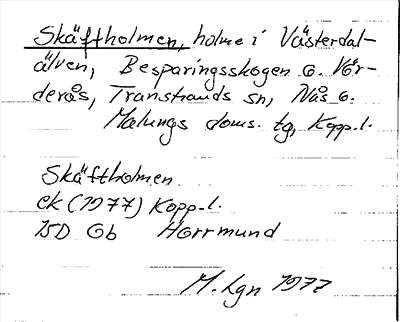 Skäftholmen, holme i Västerdal-
älven, Besparingsskogen o. Vör-
derås, Transtrands sn, Nås o.
Malungs doms. tg, Kopp.l.
Skäftholmen
ek (1977) Kopp.l.
15D Gb Horrmund
M. Lgn 1977